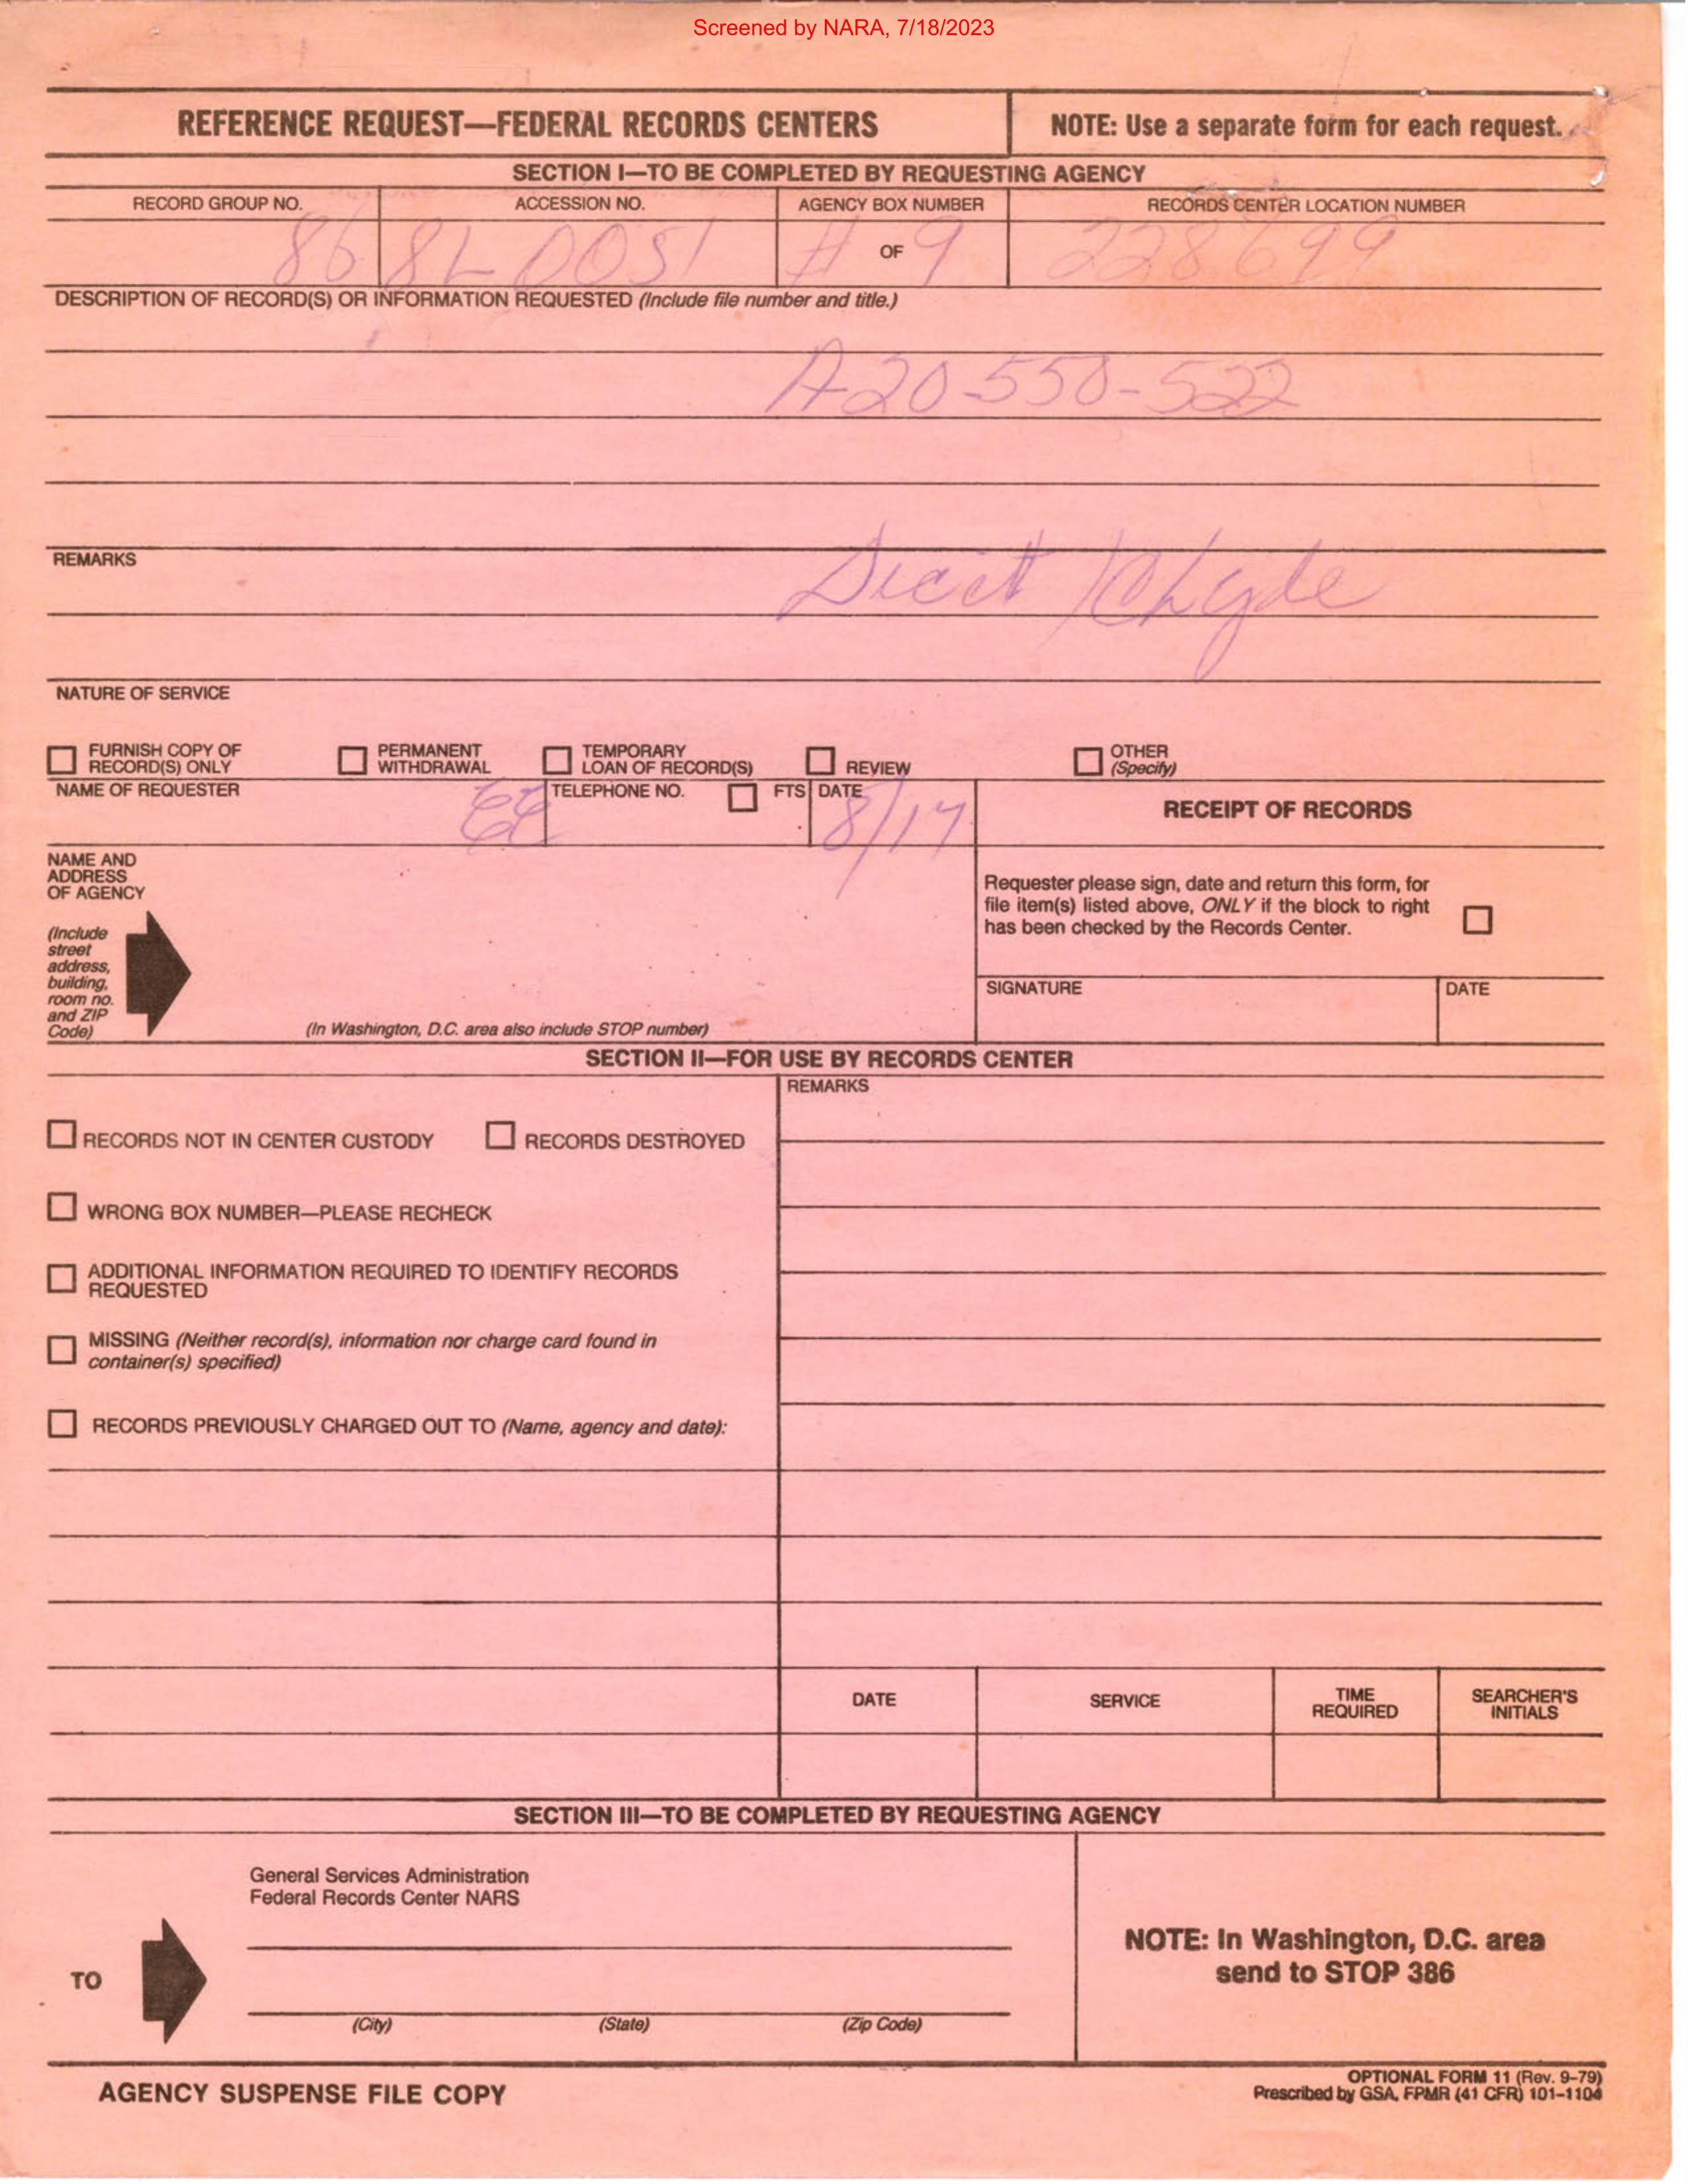 Screened by NARA, 7/18/2023
REFERENCE REQUEST—FEDERAL RECORDS CENTERS
NOTE: Use a separate form for each request.
SECTION I—TO BE COMPLETED BY REQUESTING AGENCY
RECORD GROUP NO.
ACCESSION NO.
AGENCY BOX NUMBER
RECORDS CENTER LOCATION NUMBER
86 8L 0051 # OF 9 228699
DESCRIPTION OF RECORD(S) OR INFORMATION REQUESTED (Include file number and title.)
A20-550-522
REMARKS
NATURE OF SERVICE
FURNISH COPY OF
RECORD(S) ONLY
PERMANENT
WITHDRAWAL
TEMPORARY
LOAN OF RECORD(S)
REVIEW
OTHER
(Specify)
NAME OF REQUESTER
TELEPHONE NO.
FTS
DATE
8/17
RECEIPT OF RECORDS
NAME AND
ADDRESS
OF AGENCY
(Include
street
address,
building,
room no.
and ZIP
Code)
(In Washington, D.C. area also include STOP number)
Requester please sign, date and return this form, for
file item(s) listed above, ONLY if the block to right
has been checked by the Records Center.
SIGNATURE
DATE
SECTION II—FOR USE BY RECORDS CENTER
REMARKS
RECORDS NOT IN CENTER CUSTODY
RECORDS DESTROYED
WRONG BOX NUMBER—PLEASE RECHECK
ADDITIONAL INFORMATION REQUIRED TO IDENTIFY RECORDS
REQUESTED
MISSING (Neither record(s), information nor charge card found in
container(s) specified)
RECORDS PREVIOUSLY CHARGED OUT TO (Name, agency and date):
DATE
SERVICE
TIME
REQUIRED
SEARCHER'S
INITIALS
SECTION III—TO BE COMPLETED BY REQUESTING AGENCY
General Services Administration
Federal Records Center NARS
TO
(City)
(State)
(Zip Code)
NOTE: In Washington, D.C. area
send to STOP 386
AGENCY SUSPENSE FILE COPY
OPTIONAL FORM 11 (Rev. 9-79)
Prescribed by GSA, FPMR (41 CFR) 101-1104